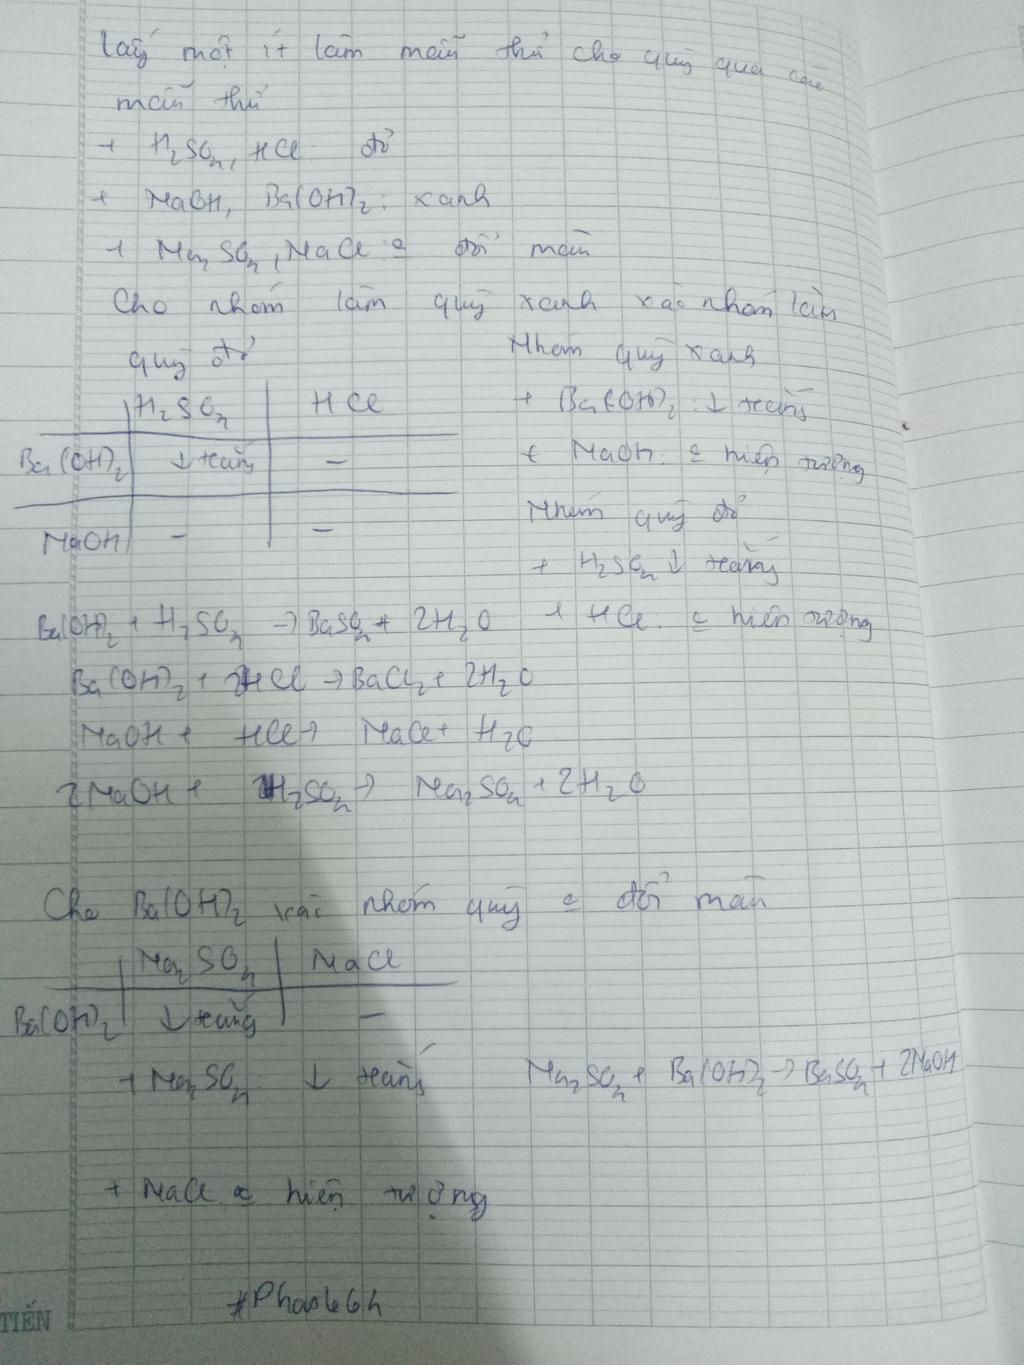 lấy một ít làm mẫu thử cho quỳ qua các
mẫu thử
+ H₂SO₄, HCl: đỏ
+ NaOH, Ba(OH)₂: xanh
+ Na₂SO₄, NaCl: c đổi màu
Cho nhóm làm quỳ xanh vào nhóm làm
quỳ đỏ
H₂SO₄ HCl
Ba(OH)₂ ↓ trắng –
NaOH – –
Nhóm quỳ xanh
+ Ba(OH)₂: ↓ trắng
+ NaOH: c hiện tượng
Nhóm quỳ đỏ
+ H₂SO₄ ↓ trắng
+ HCl: c hiện tượng
Ba(OH)₂ + H₂SO₄ → BaSO₄ + 2H₂O
Ba(OH)₂ + 2HCl → BaCl₂ + 2H₂O
NaOH + HCl → NaCl + H₂O
2NaOH + H₂SO₄ → Na₂SO₄ + 2H₂O
Cho Ba(OH)₂ vào nhóm quỳ c đổi màu
Na₂SO₄ NaCl
Ba(OH)₂ ↓ trắng –
+ Na₂SO₄: ↓ trắng Na₂SO₄ + Ba(OH)₂ → BaSO₄ + 2NaOH
+ NaCl c hiện tượng
TIẾN